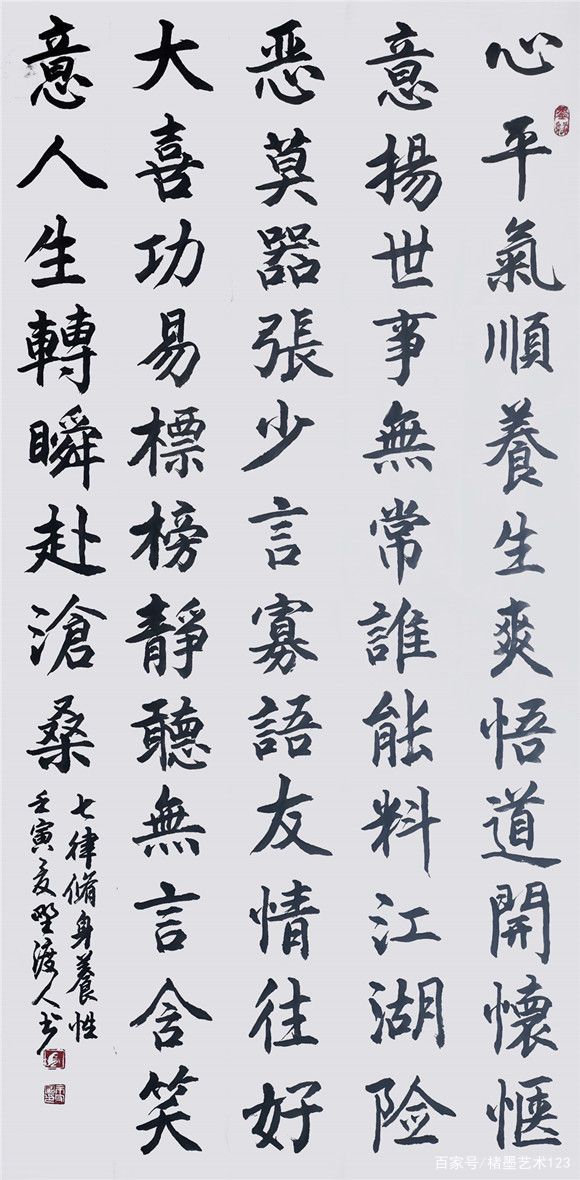 心平氣順養生爽悟道開懷愜
意揚世事無常誰能料江湖险
恶莫器張少言寡語友情往好
大喜功易標榜靜聽無言含笑
意人生轉瞬赴滄桑
七律脩身養性
壬寅夏野渡人书
百家号/楮墨艺术123